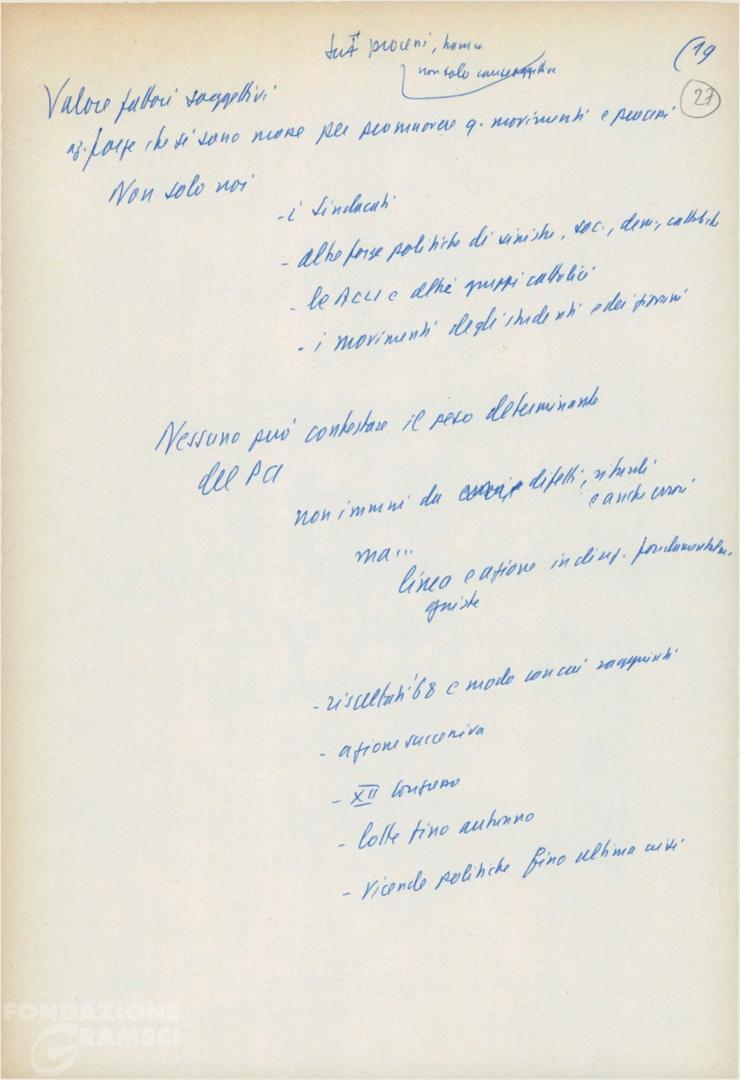 tutti processi, hanno
(19
non solo cause oggettive
27
Valore fattori soggettivi
az. forze che si sono mosse per promuovere q. movimenti e processi
Non solo noi
- i sindacati
- altre forze politiche di sinistra, soc., dem., cattoliche
- le ACLI e altri gruppi cattolici
- i movimenti degli studenti e dei giovani
Nessuno può contestare il peso determinante
del PCI
non immuni da difetti, ritardi
e anche errori
ma...
linea e azione in cless. fondamentalm.
giuste
- risultati '68 e modo con cui raggiunti
- azione successiva
- XII Congresso
- Lotte fino autunno
- Vicende politiche fino ultima crisi
FONDAZIONE
GRAMSCI